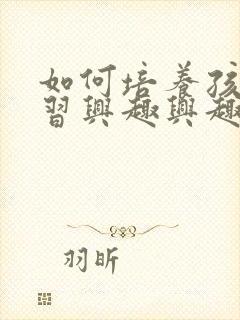 如何培养孩
習興趣興趣
羽昕